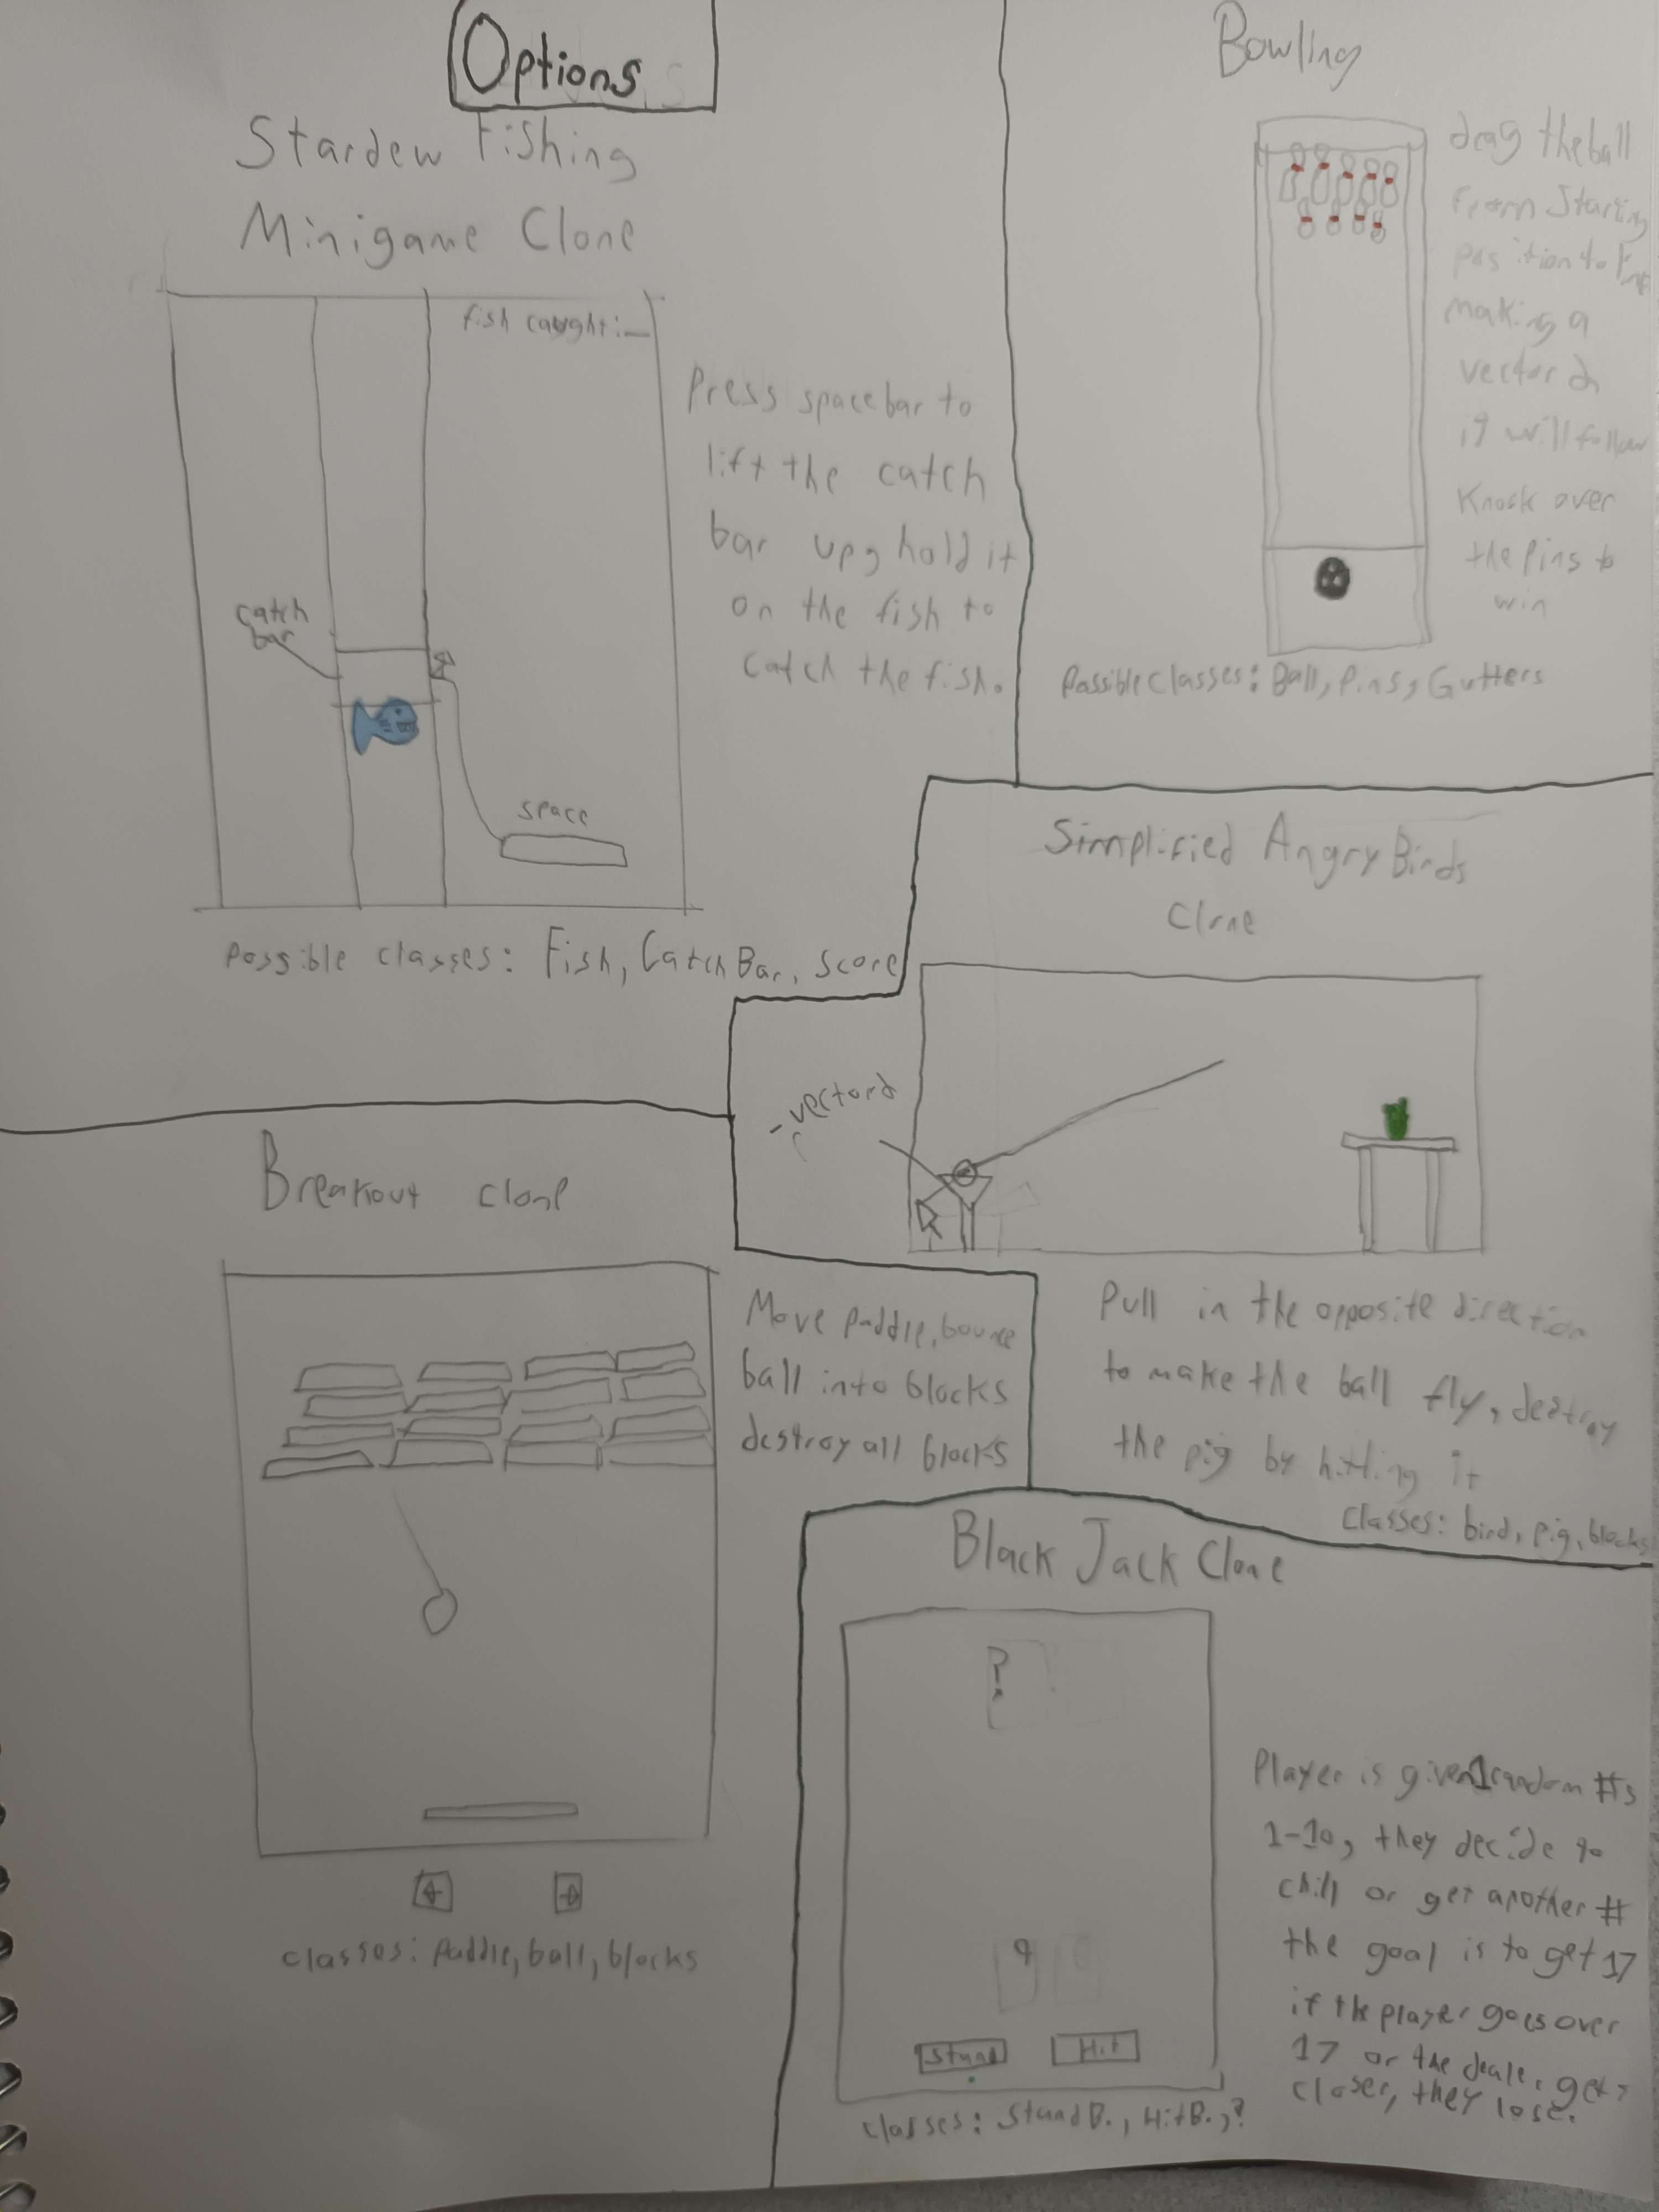 Options
Stardew Fishing
Minigame Clone
fish caught:
Press spacebar to
lift the catch
bar up, hold it
on the fish to
catch the fish.
catch
bar
space
Possible classes: Fish, CatchBar, Score
Bowling
drag the ball
from Starting
position to
making a
vector &
it will follow
Knock over
the pins to
win
Possible classes: Ball, Pins, Gutters
Simplified Angry Birds
Clone
Pull in the opposite direction
to make the ball fly, destroy
the pig by hitting it
Classes: bird, pig, blocks
Breakout clone
Move paddle, bounce
ball into blocks
destroy all blocks
classes: paddle, ball, blocks
Black Jack Clone
?
9
Stand
Hit
Player is given 1 random #s
1-10, they decide to
chill or get another #
the goal is to get 17
if the player goes over
17 or the dealer gets
closer, they lose.
classes: StandB., HitB.,?